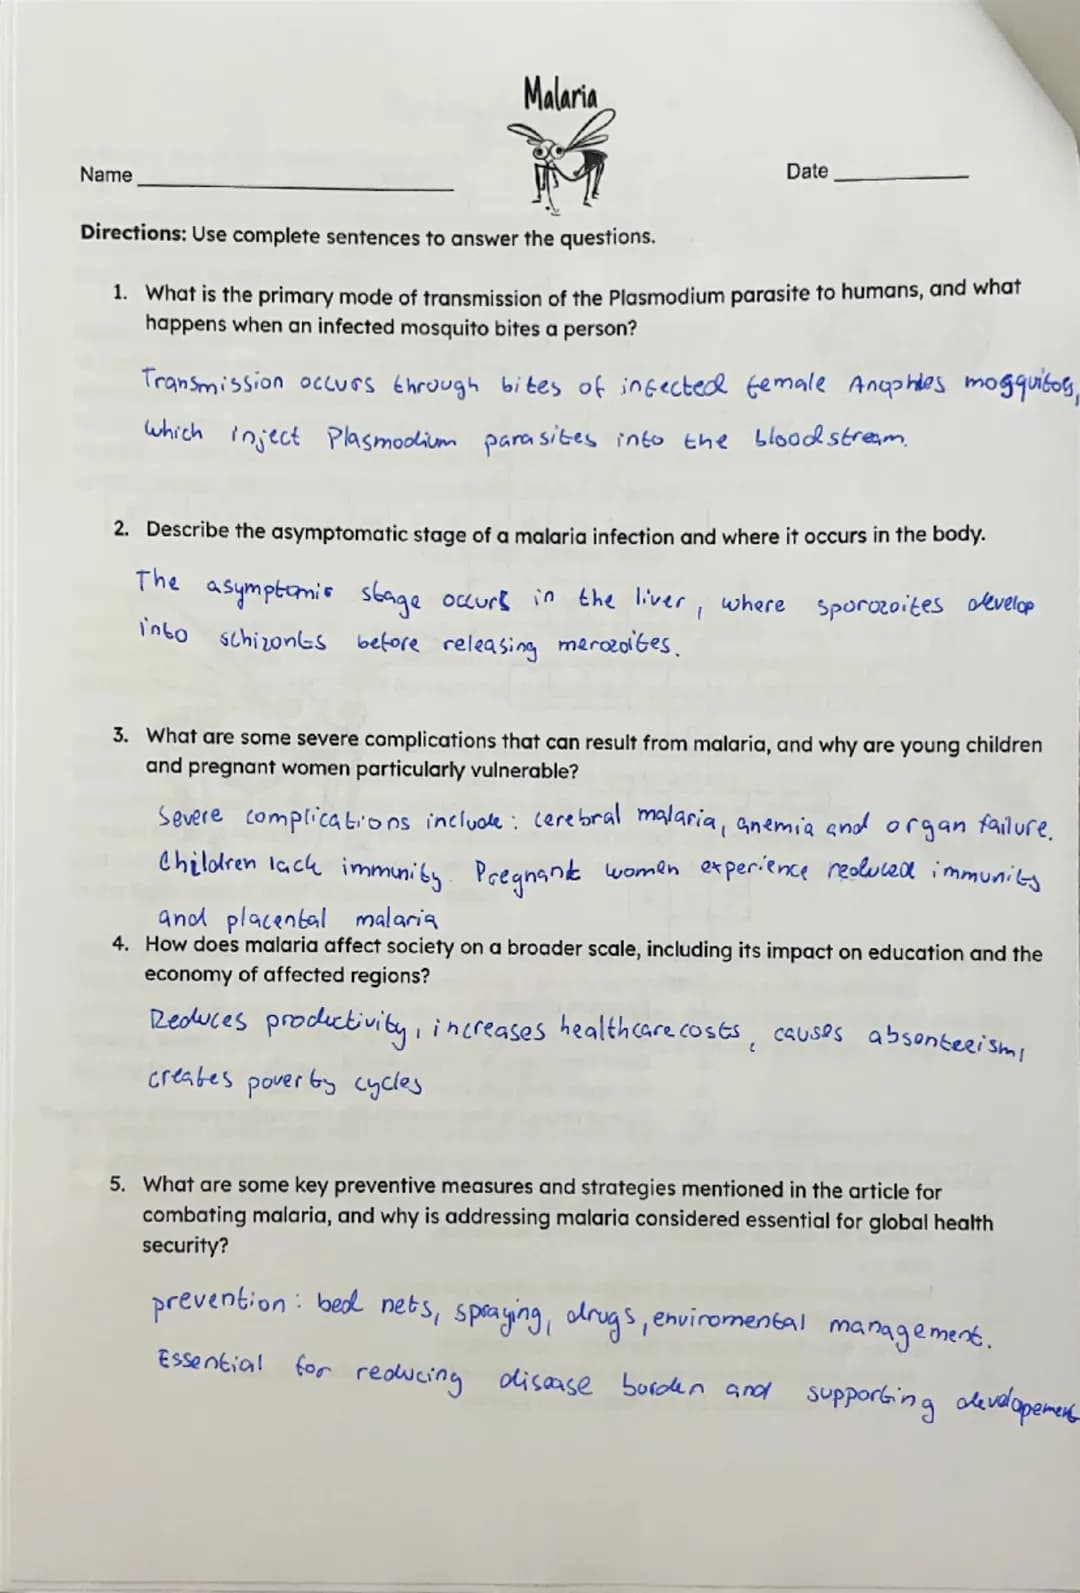 Malaria
Name
Date
Directions: Use complete sentences to answer the questions.
1. What is the primary mode of transmission of the Plasmodium parasite to humans, and what
happens when an infected mosquito bites a person?
Transmission occurs through bites of infected female Anophles mosquitoes,
which inject Plasmodium parasites into the bloodstream.
2. Describe the asymptomatic stage of a malaria infection and where it occurs in the body.
The asymptomic stage occurs in the liver, where sporozoites develop
into schizonts before releasing merozoites.
3. What are some severe complications that can result from malaria, and why are young children
and pregnant women particularly vulnerable?
Severe complications include: cerebral malaria, anemia and organ failure.
Children lack immunity. Pregnant women experience reduced immunity
and placental malaria
4. How does malaria affect society on a broader scale, including its impact on education and the
economy of affected regions?
Reduces productivity, increases healthcare costs, causes absenteeism,
creates poverty cycles
5. What are some key preventive measures and strategies mentioned in the article for
combating malaria, and why is addressing malaria considered essential for global health
security?
prevention: bed nets, spraying, drugs, enviromental management.
Essential for reducing disease burden and supporting developement